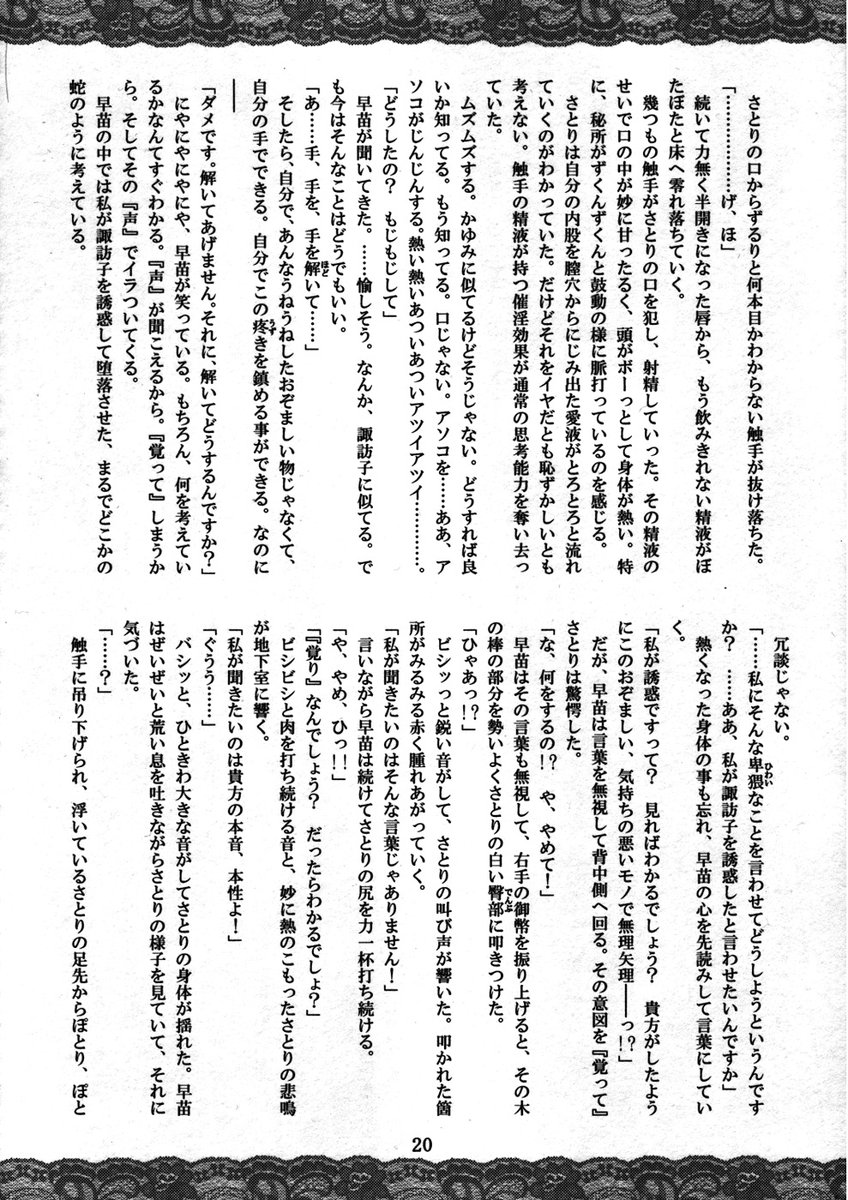 さとりの口からずるりと何本目かわからない触手が抜け落ちた。
「………………げ、ほ」
続いて力無く半開きになった唇から、もう飲みきれない精液がぼ
たぼたと床へ零れ落ちていく。
幾つもの触手がさとりの口を犯し、射精していった。その精液の
せいで口の中が妙に甘ったるく、頭がボーっとして身体が熱い。特
に、秘所がずくんずくんと鼓動の様に脈打っているのを感じる。
さとりは自分の内股を膣穴からにじみ出た愛液がとろとろと流れ
ていくのがわかっていた。だけどそれをイヤだとも恥ずかしいとも
考えない。触手の精液が持つ催淫効果が通常の思考能力を奪い去っ
ていた。
ムズムズする。かゆみに似てるけどそうじゃない。どうすれば良
いか知ってる。もう知ってる。口じゃない。アソコを……ああ、ア
ソコがじんじんする。熱い熱いあついあついアツイアツイ…………。
「どうしたの？　もじもじして」
早苗が聞いてきた。……愉しそう。なんか、諏訪子に似てる。で
も今はそんなことはどうでもいい。
「あ……手、手を、手を解いて……」
そしたら、自分で、あんなうねうねしたおぞましい物じゃなくて、
自分の手でできる。自分でこの疼きを鎮める事ができる。なのに
――
「ダメです。解いてあげません。それに、解いてどうするんですか？」
にやにやにやにや、早苗が笑っている。もちろん、何を考えてい
るかなんてすぐわかる。『声』が聞こえるから。『覚って』しまうか
ら。そしてその『声』でイラついてくる。
早苗の中では私が諏訪子を誘惑して堕落させた、まるでどこかの
蛇のように考えている。
冗談じゃない。
「……私にそんな卑猥なことを言わせてどうしようというんです
か？　……ああ、私が諏訪子を誘惑したと言わせたいんですか」
熱くなった身体の事も忘れ、早苗の心を先読みして言葉にしてい
く。
「私が誘惑ですって？　見ればわかるでしょう？　貴方がしたよう
にこのおぞましい、気持ちの悪いモノで無理矢理――っ！？」
だが、早苗は言葉を無視して背中側へ回る。その意図を『覚って』
さとりは驚愕した。
「な、何をするの！？　や、やめて！」
早苗はその言葉も無視して、右手の御幣を振り上げると、その木
の棒の部分を勢いよくさとりの白い臀部に叩きつけた。
「ひゃあっ！？」
ビシッっと鋭い音がして、さとりの叫び声が響いた。叩かれた箇
所がみるみる赤く腫れあがっていく。
「私が聞きたいのはそんな言葉じゃありません！」
言いながら早苗は続けてさとりの尻を力一杯打ち続ける。
「や、やめ、ひっ！！」
「『覚り』なんでしょう？　だったらわかるでしょ？」
ビシビシと肉を打ち続ける音と、妙に熱のこもったさとりの悲鳴
が地下室に響く。
「私が聞きたいのは貴方の本音、本性よ！」
「ぐうう……」
バシッと、ひときわ大きな音がしてさとりの身体が揺れた。早苗
はぜいぜいと荒い息を吐きながらさとりの様子を見ていて、それに
気づいた。
「……？」
触手に吊り下げられ、浮いているさとりの足先からぽとり、ぽと
20